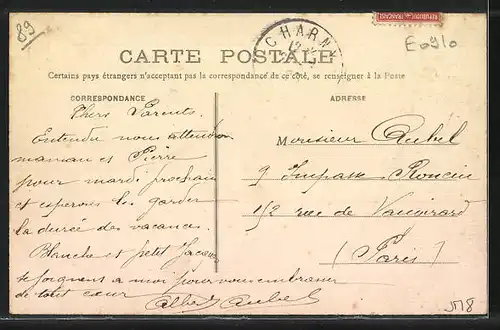 89
CHARNY
CARTE POSTALE
E0910
Certains pays étrangers n'acceptant pas la correspondance de ce côté, se renseigner à la Poste
CORRESPONDANCE
Chers Parents.
Entendu nous attendons
maman et Pierre
pour mardi prochain
et esperons les garder
la durée des vacances.
Blanche et petit Jacques
se joignent a moi pour vous embrasser
de tout cœur
Albert Aubel
ADRESSE
Monsieur Aubel
9 Impasse Ronsin
152 rue de Vaugirard
(Paris)